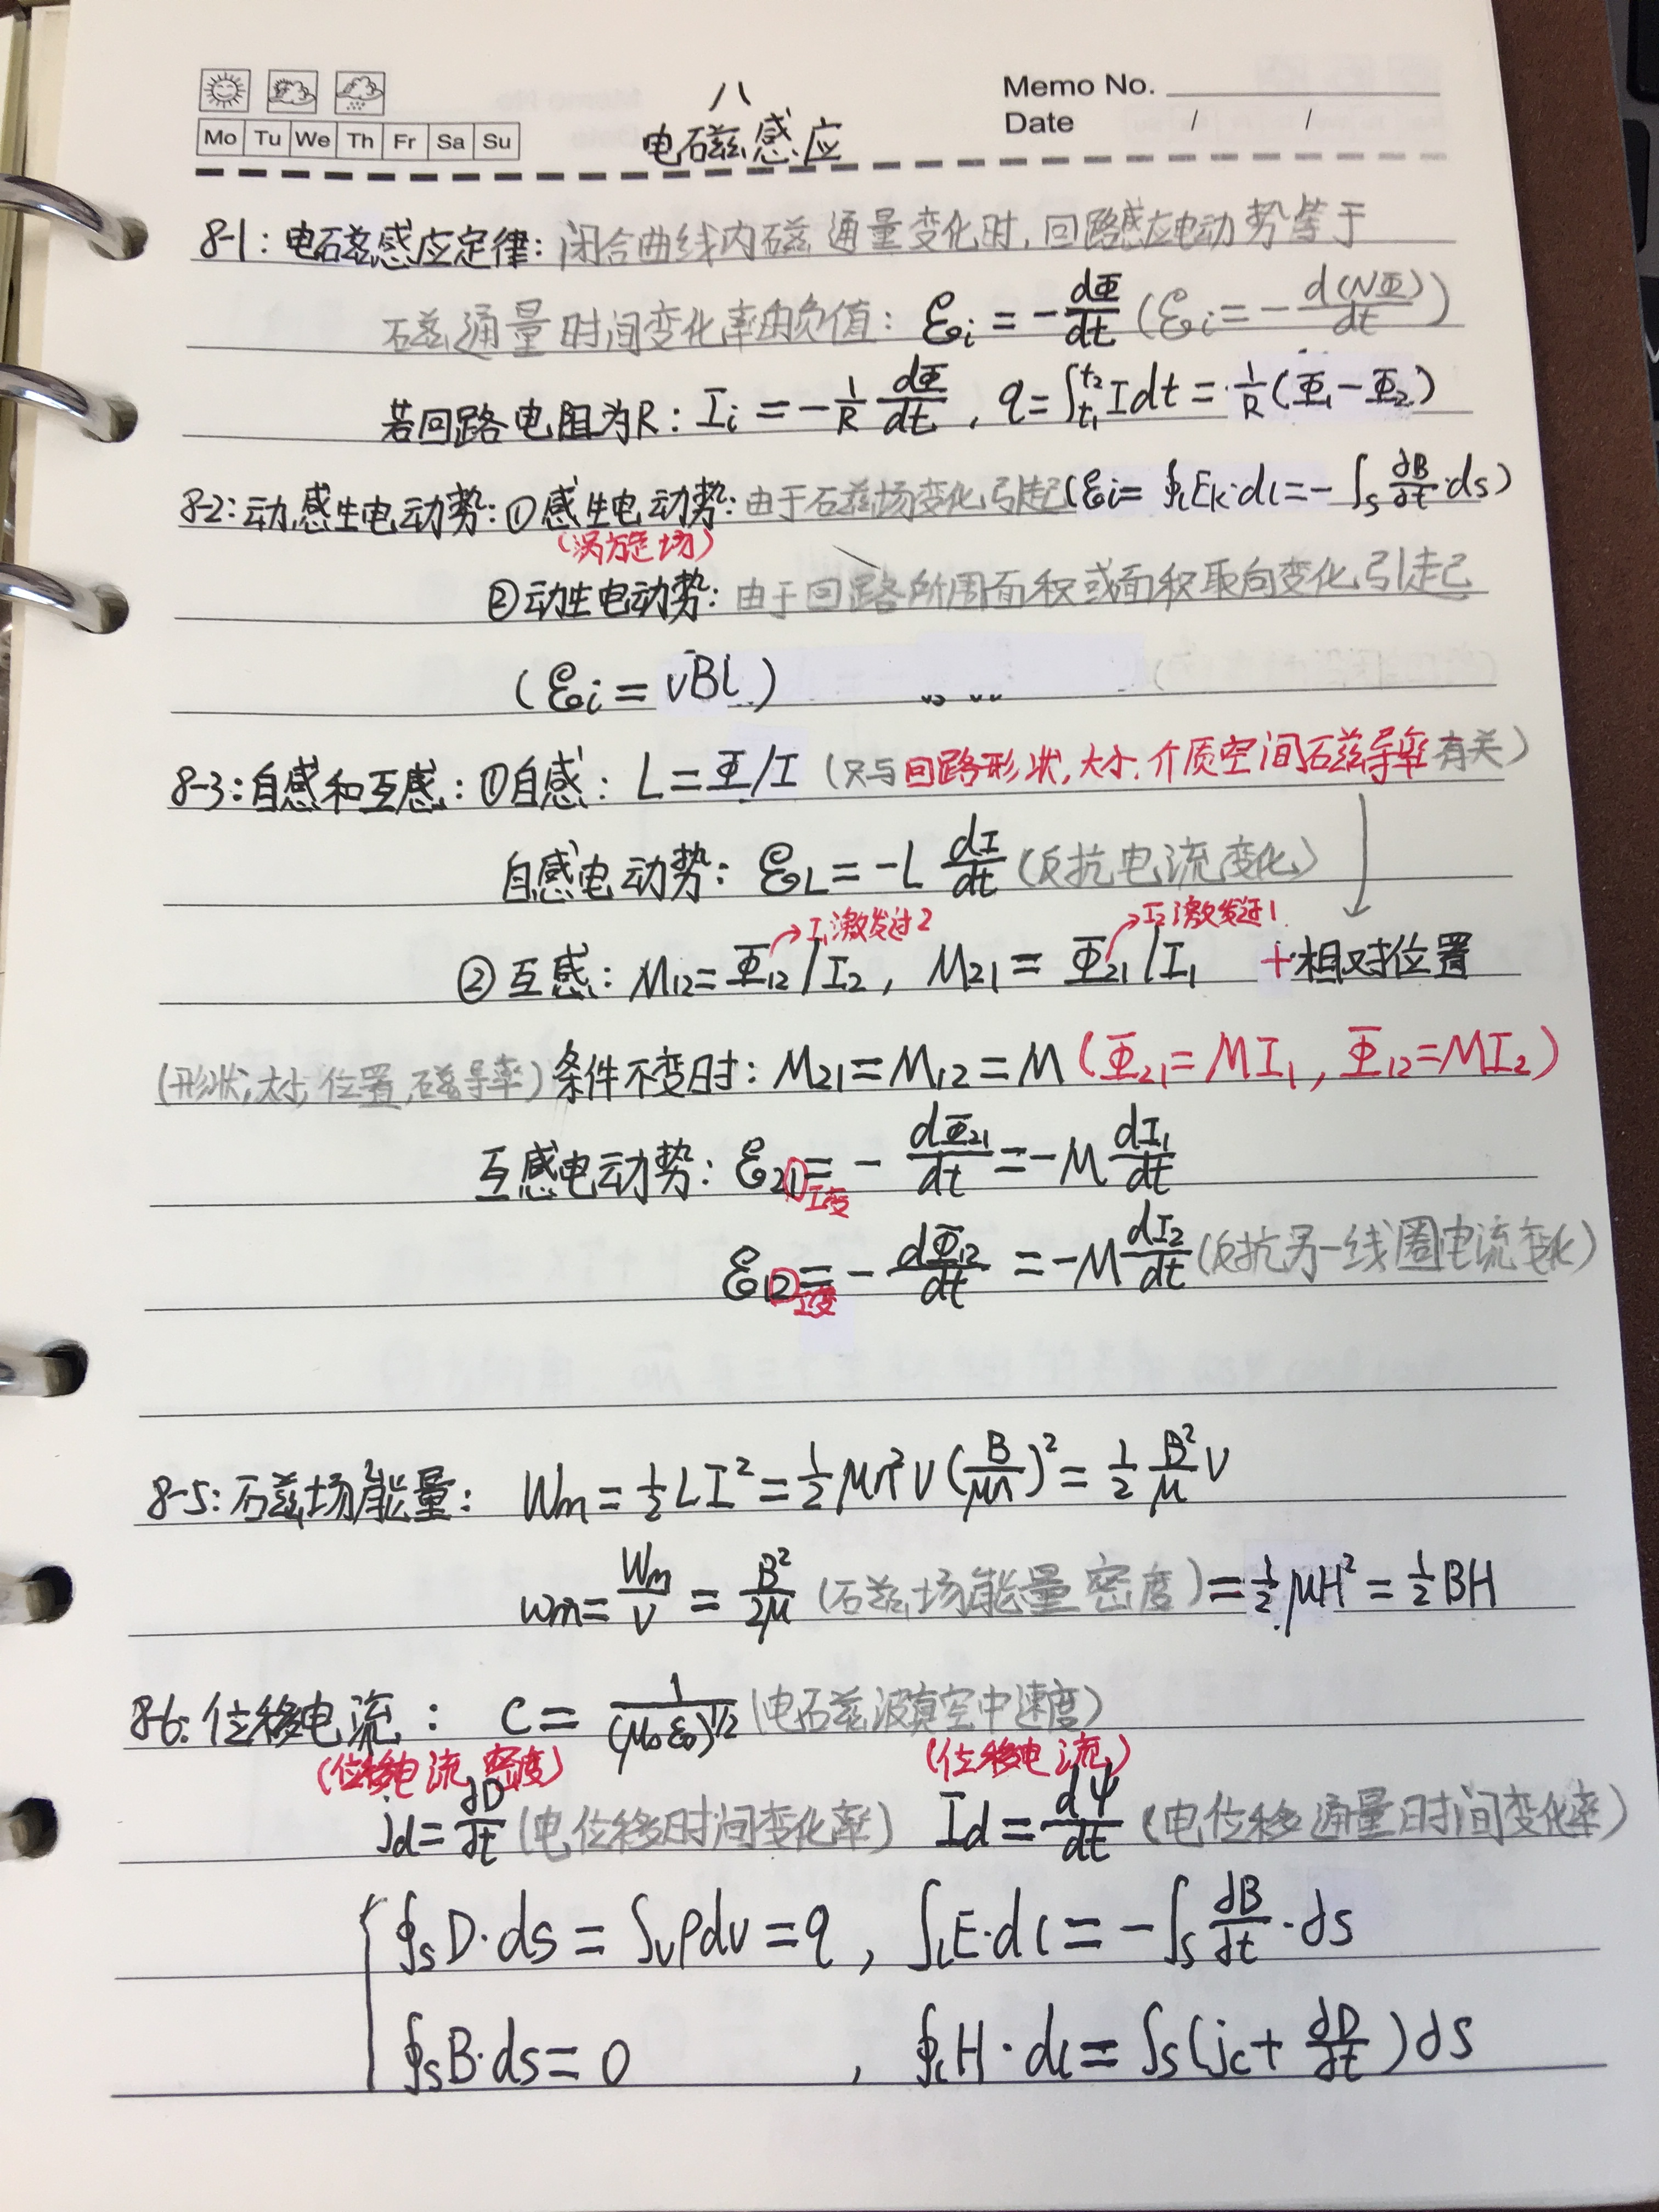 八
Memo No.
Mo Tu We Th Fr Sa Su
电磁感应
Date / /
8-1：电磁感应定律：闭合曲线内磁通量变化时，回路感应电动势等于
磁通量时间变化率的负值：ℰi = -dΦ/dt (ℰi = -d(NΦ)/dt)
若回路电阻为R：Ii = -1/R dΦ/dt，q = ∫t1^t2 I dt = 1/R (Φ1 - Φ2)
8-2：动感生电动势：①感生电动势：由于磁场变化引起(ℰi = ∮l Ek·dl = -∫s ∂B/∂t·ds)
(涡旋场)
②动生电动势：由于回路所围面积或面积取向变化引起
(ℰi = vBl)
8-3：自感和互感：①自感：L = Φ/I (只与回路形状，大小，介质空间磁导率有关)
自感电动势：ℰL = -L dI/dt (反抗电流变化)
I1激发过2 I2激发过1
②互感：M12 = Φ12/I2，M21 = Φ21/I1 +相对位置
(形状，大小，位置，磁导率)条件不变时：M21 = M12 = M (Φ21 = MI1，Φ12 = MI2)
互感电动势：ℰ21 = -dΦ21/dt = -M dI1/dt
I变
ℰ12 = -dΦ12/dt = -M dI2/dt (反抗另一线圈电流变化)
I变
8-5：磁场能量：Wm = 1/2 LI² = 1/2 μn²V(B/μn)² = 1/2 B²/μ V
wm = Wm/V = B²/2μ (磁场能量密度) = 1/2 μH² = 1/2 BH
8-6：位移电流：c = 1/(μ0ε0)^1/2 (电磁波真空中速度)
(位移电流密度) (位移电流)
jd = ∂D/∂t (电位移时间变化率) Id = dψ/dt (电位移通量时间变化率)
{ ∮s D·ds = ∫v ρdv = q， ∫l E·dl = -∫s ∂B/∂t·ds
∮s B·ds = 0 ， ∮l H·dl = ∫s (jc + ∂D/∂t) ds